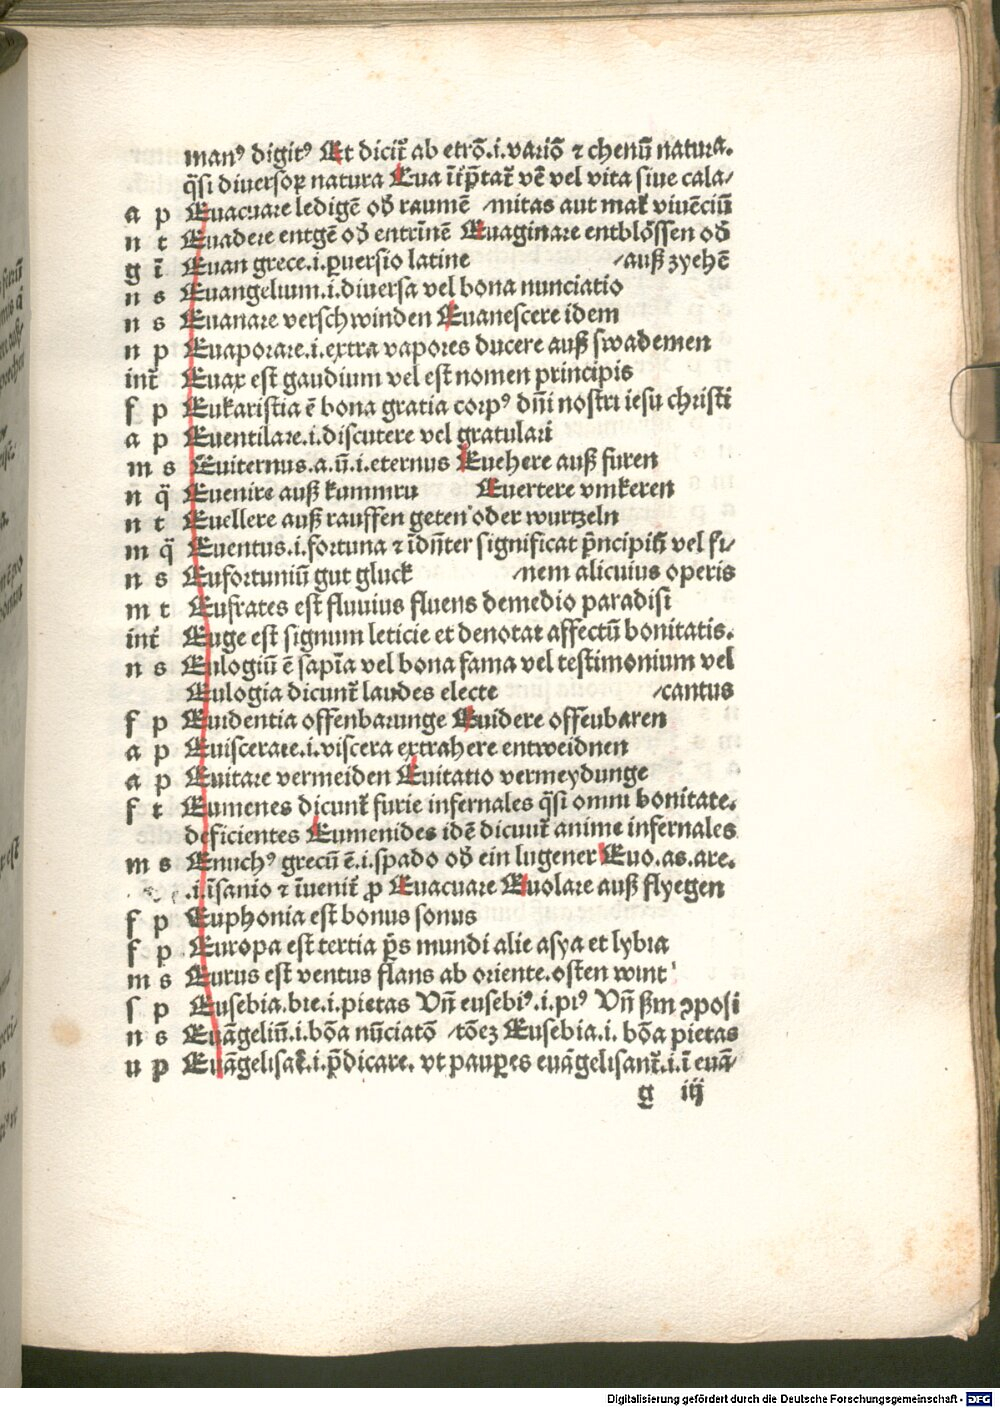 manꝰ digitꝰ Et dicit᷑ ab etrō.i.variō ⁊ chenū natura.
q̈si diuersoꝝ natura Eua īt᷑p̄tat᷑ ve᷑ vel vita siue cala⸗
a p Euacuare ledigē od᷑ raumē ⸗mitas aut mat᷑ viuēciū
n t Euadere entgē od᷑ entrīnē Euaginare entblössen od᷑
g ī Euan grece.i.ꝑuersio latine ⸗auß zyehē
n s Euangelium.i.diuersa vel bona nunciatio
n s Euanare verschwinden Euanescere idem
n p Euaporare.i.extra vapores ducere auß swademen
int᷑ Euax est gaudium vel est nomen principis
f p Eukaristia ē bona gratia corpꝰ dn̄i nostri iesu christi
a p Euentilare.i.discutere vel gratulari
m s Euiternus.a.ū.i.eternus Euehere auß furen
n q̈ Euenire auß kummru Euertere vmkeren
n t Euellere auß rauffen geten oder wurtzeln
m q̈ Euentus.i.fortuna ⁊ īdn̄ter significat p̄ncipiū vel fi⸗
n s Eufortuniū gut gluck ⸗nem alicuius operis
m t Eufrates est fluuius fluens demedio paradisi
int᷑ Euge est signum leticie et denotat affectū bonitatis.
n s Eulogiū ē sapīa vel bona fama vel testimonium vel
Eulogia dicunt᷑ laudes electe ⸗cantus
f p Euidentia offenbarunge Euidere offeubaren
a p Euiscerare.i.viscera extrahere entweidnen
a p Euitare vermeiden Euitatio vermeydunge
f t Eumenes dicunt᷑ furie infernales q̈si omni bonitate.
deficientes Eumenides idē dicuut᷑ anime infernales
m s Enuchꝰ grecū ē.i.spado od᷑ ein lugener Euo.as.are.
.i.īsanio ⁊ īuenit᷑ ꝓ Euacuare Euolare auß flyegen
f p Euphonia est bonus sonus
f p Europa est tertia p̄s mundi alie asya et lybia
m s Eurus est ventus flans ab oriente.osten wint
f p Eusebia.bie.i.pietas Vn̄ eusebiꝰ.i.piꝰ Vn̄ ßm ꝯposi
n s Euāgeliū.i.bōa nūciatō ⸗tōez Eusebia.i.bōa pietas
u p Euāgelisat᷑.i.p̄dicare. vt pauꝑes euāgelisant᷑.i.ī euā⸗
g iij
Digitalisierung gefördert durch die Deutsche Forschungsgemeinschaft - DFG